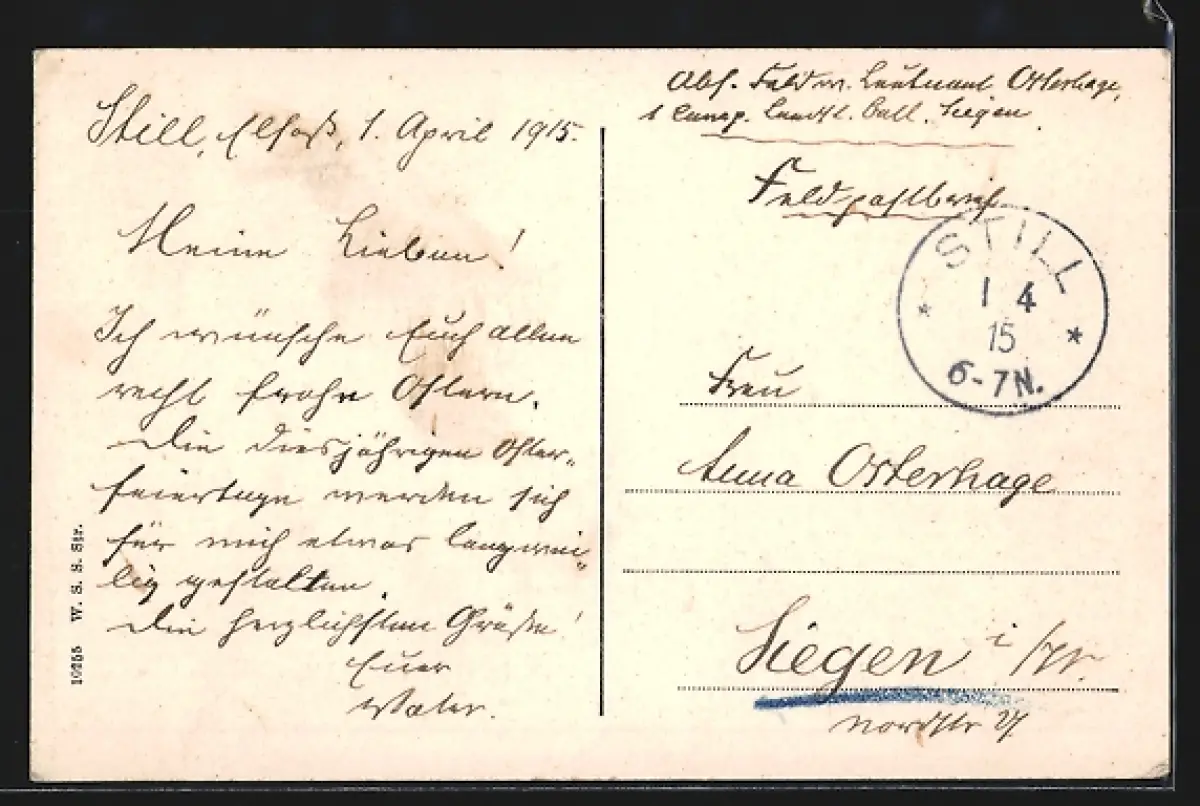 Still, Elsaß, 1. April 1915.
Meine Lieben!
Ich wünsche Euch allen
recht frohe Ostern.
Die diesjährigen Oster-
feiertage werden sich
für mich etwas langwei-
lig gestalten.
Die herzlichsten Grüße!
Euer
Vater.
10255 W. S. S. Str.
Abs. Feldw. Leutnant Osterhage,
1 Comp. Landst. Batl. Siegen
Feldpostbrief
STILL
1 4
15
6-7N.
Frau
Anna Osterhage
Siegen i/W.
Nordstr